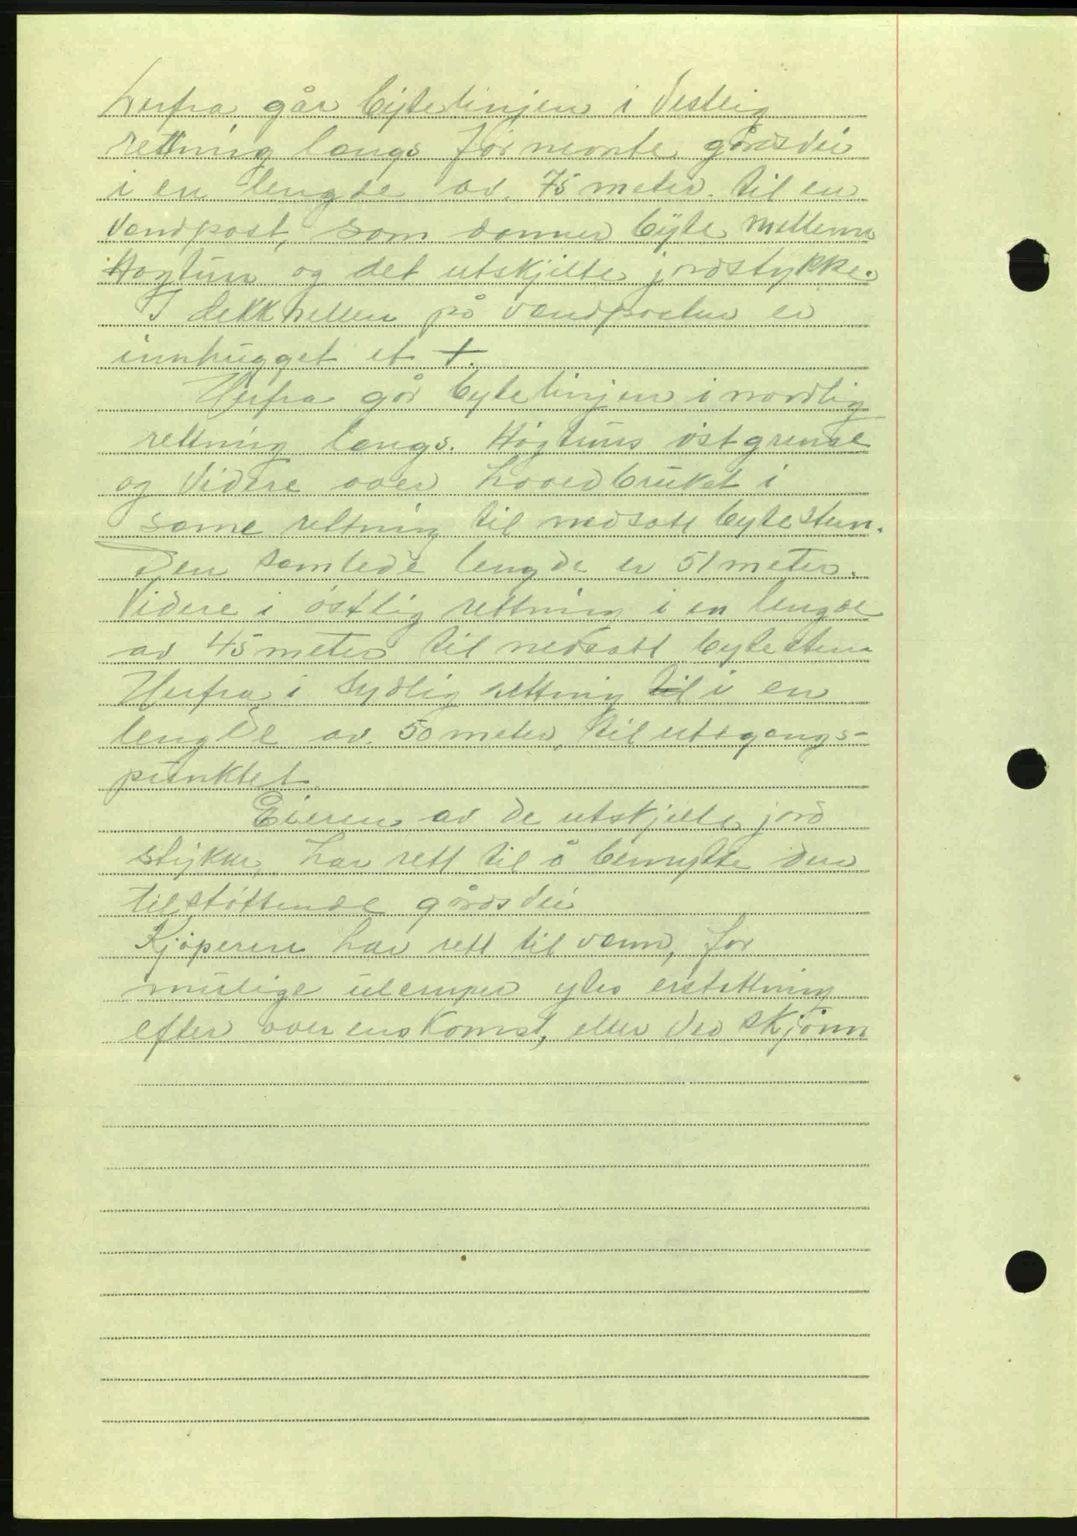 herfra går bytelinjen i Vestlig
rettning langs før nevnte gårdsvei
i en lengde av. 75 meter. til en
Vandpost, som danner byte mellem
Høgtun og det utskjilte jordstykke.
I dekkhellen på vandposten er
innhugget et +.
Herfra går bytelinjen i nordlig
rettning langs. Høgtuns østgrense
og Videre over hovedbruket i
same rettning til nedsatt bytesten.
Den samlede lengde er 51 meter.
Videre i østlig rettning i en lengde
av 45 meter til nedsatt bytesten
Herfra i Sydlig rettning til i en
lengde av. 50 meter, til utgangs-
punktet.
Eieren av de utskjilte jord
stykker, har rett til å benytte den
tilstøttende gårdsvei
Kjøperen har rett til vann, for
mulige ulemper ytes erstattning
efter overenskomst, eller ved skjønn